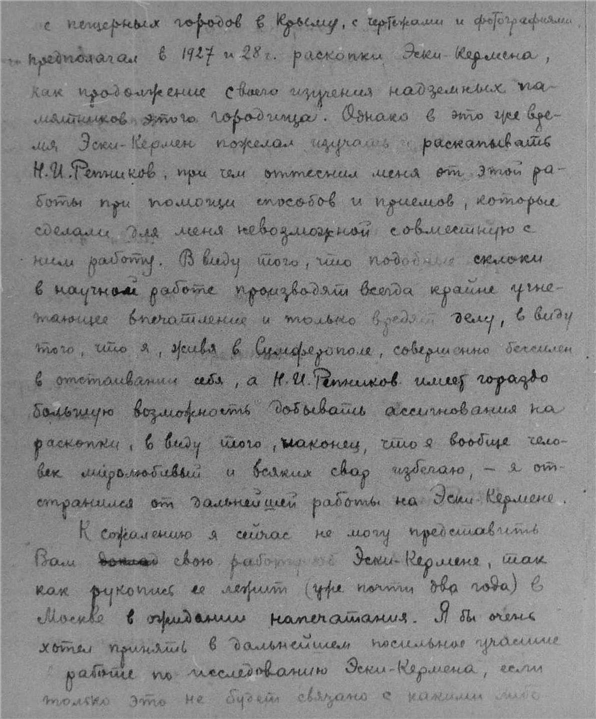 с пещерных городов в Крыму, с чертежами и фотографиями.
предполагал в 1927 и 28 г. раскопки Эски-Кермена,
как продолжение своего изучения надземных па-
мятников этого городища. Однако в это же вре-
мя Эски-Кермен пожелал изучать и раскапывать
Н.И.Репников, при чем оттеснил меня от этой ра-
боты при помощи способов и приемов, которые
сделали для меня невозможной совместную с
ним работу. В виду того, что подобные склоки
в научной работе производят всегда крайне угне-
тающее впечатление и только вредят делу, в виду
того, что я, живя в Симферополе, совершенно бессилен
в отстаивании себя, а Н.И.Репников имеет гораздо
большую возможность добывать ассигнования на
раскопки, в виду того, наконец, что я вообще чело-
век миролюбивый и всяких свар избегаю, – я от-
странился от дальнейшей работы на Эски-Кермене.
К сожалению я сейчас не могу представить
Вам свою работу об Эски-Кермене, так
как рукопись ее лежит (уже почти два года) в
Москве в ожидании напечатания. Я бы очень
хотел принять в дальнейшем посильное участие
работе по исследованию Эски-Кермена, если
только это не будет связано с какими либо